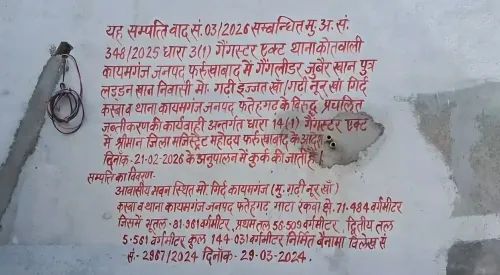 यह सम्पत्ति वाद सं. 03/2026 सम्बन्धित मु. अ. सं.
348/2025 धारा 3(1) गैंगस्टर एक्ट थाना कोतवाली
कायमगंज जनपद फर्रुखाबाद में गैंगलीडर जुबैर खान पुत्र
लड्डन खान निवासी मो. गढी इज्जत खाँ/गढी नूर खाँ गिर्द
कस्बा व थाना कायमगंज जनपद फतेहगढ के विरूद्ध प्रचलित
जब्तीकरण की कार्यवाही अन्तर्गत धारा 14(1) गैंगस्टर एक्ट
में श्रीमान जिला मजिस्ट्रेट महोदय फर्रुखाबाद के आदेश
दिनांक-21-02-2026 के अनुपालन में कुर्क की जाती है।
सम्पत्ति का विवरण-
आवासीय भवन स्थित मो. गिर्द कायमगंज (मु. गढी नूर खाँ)
कस्बा व थाना कायमगंज जनपद फतेहगढ गाटा रकवा क्षे. 71.484 वर्गमीटर
जिसमें भूतल-81.961 वर्गमीटर, प्रथमतल 56.509 वर्गमीटर, द्वितीय तल
5.561 वर्गमीटर कुल 144.031 वर्गमीटर निर्मित बैनामा विलेख सं
सं.-2967/2024 दिनांक-29-03-2024.